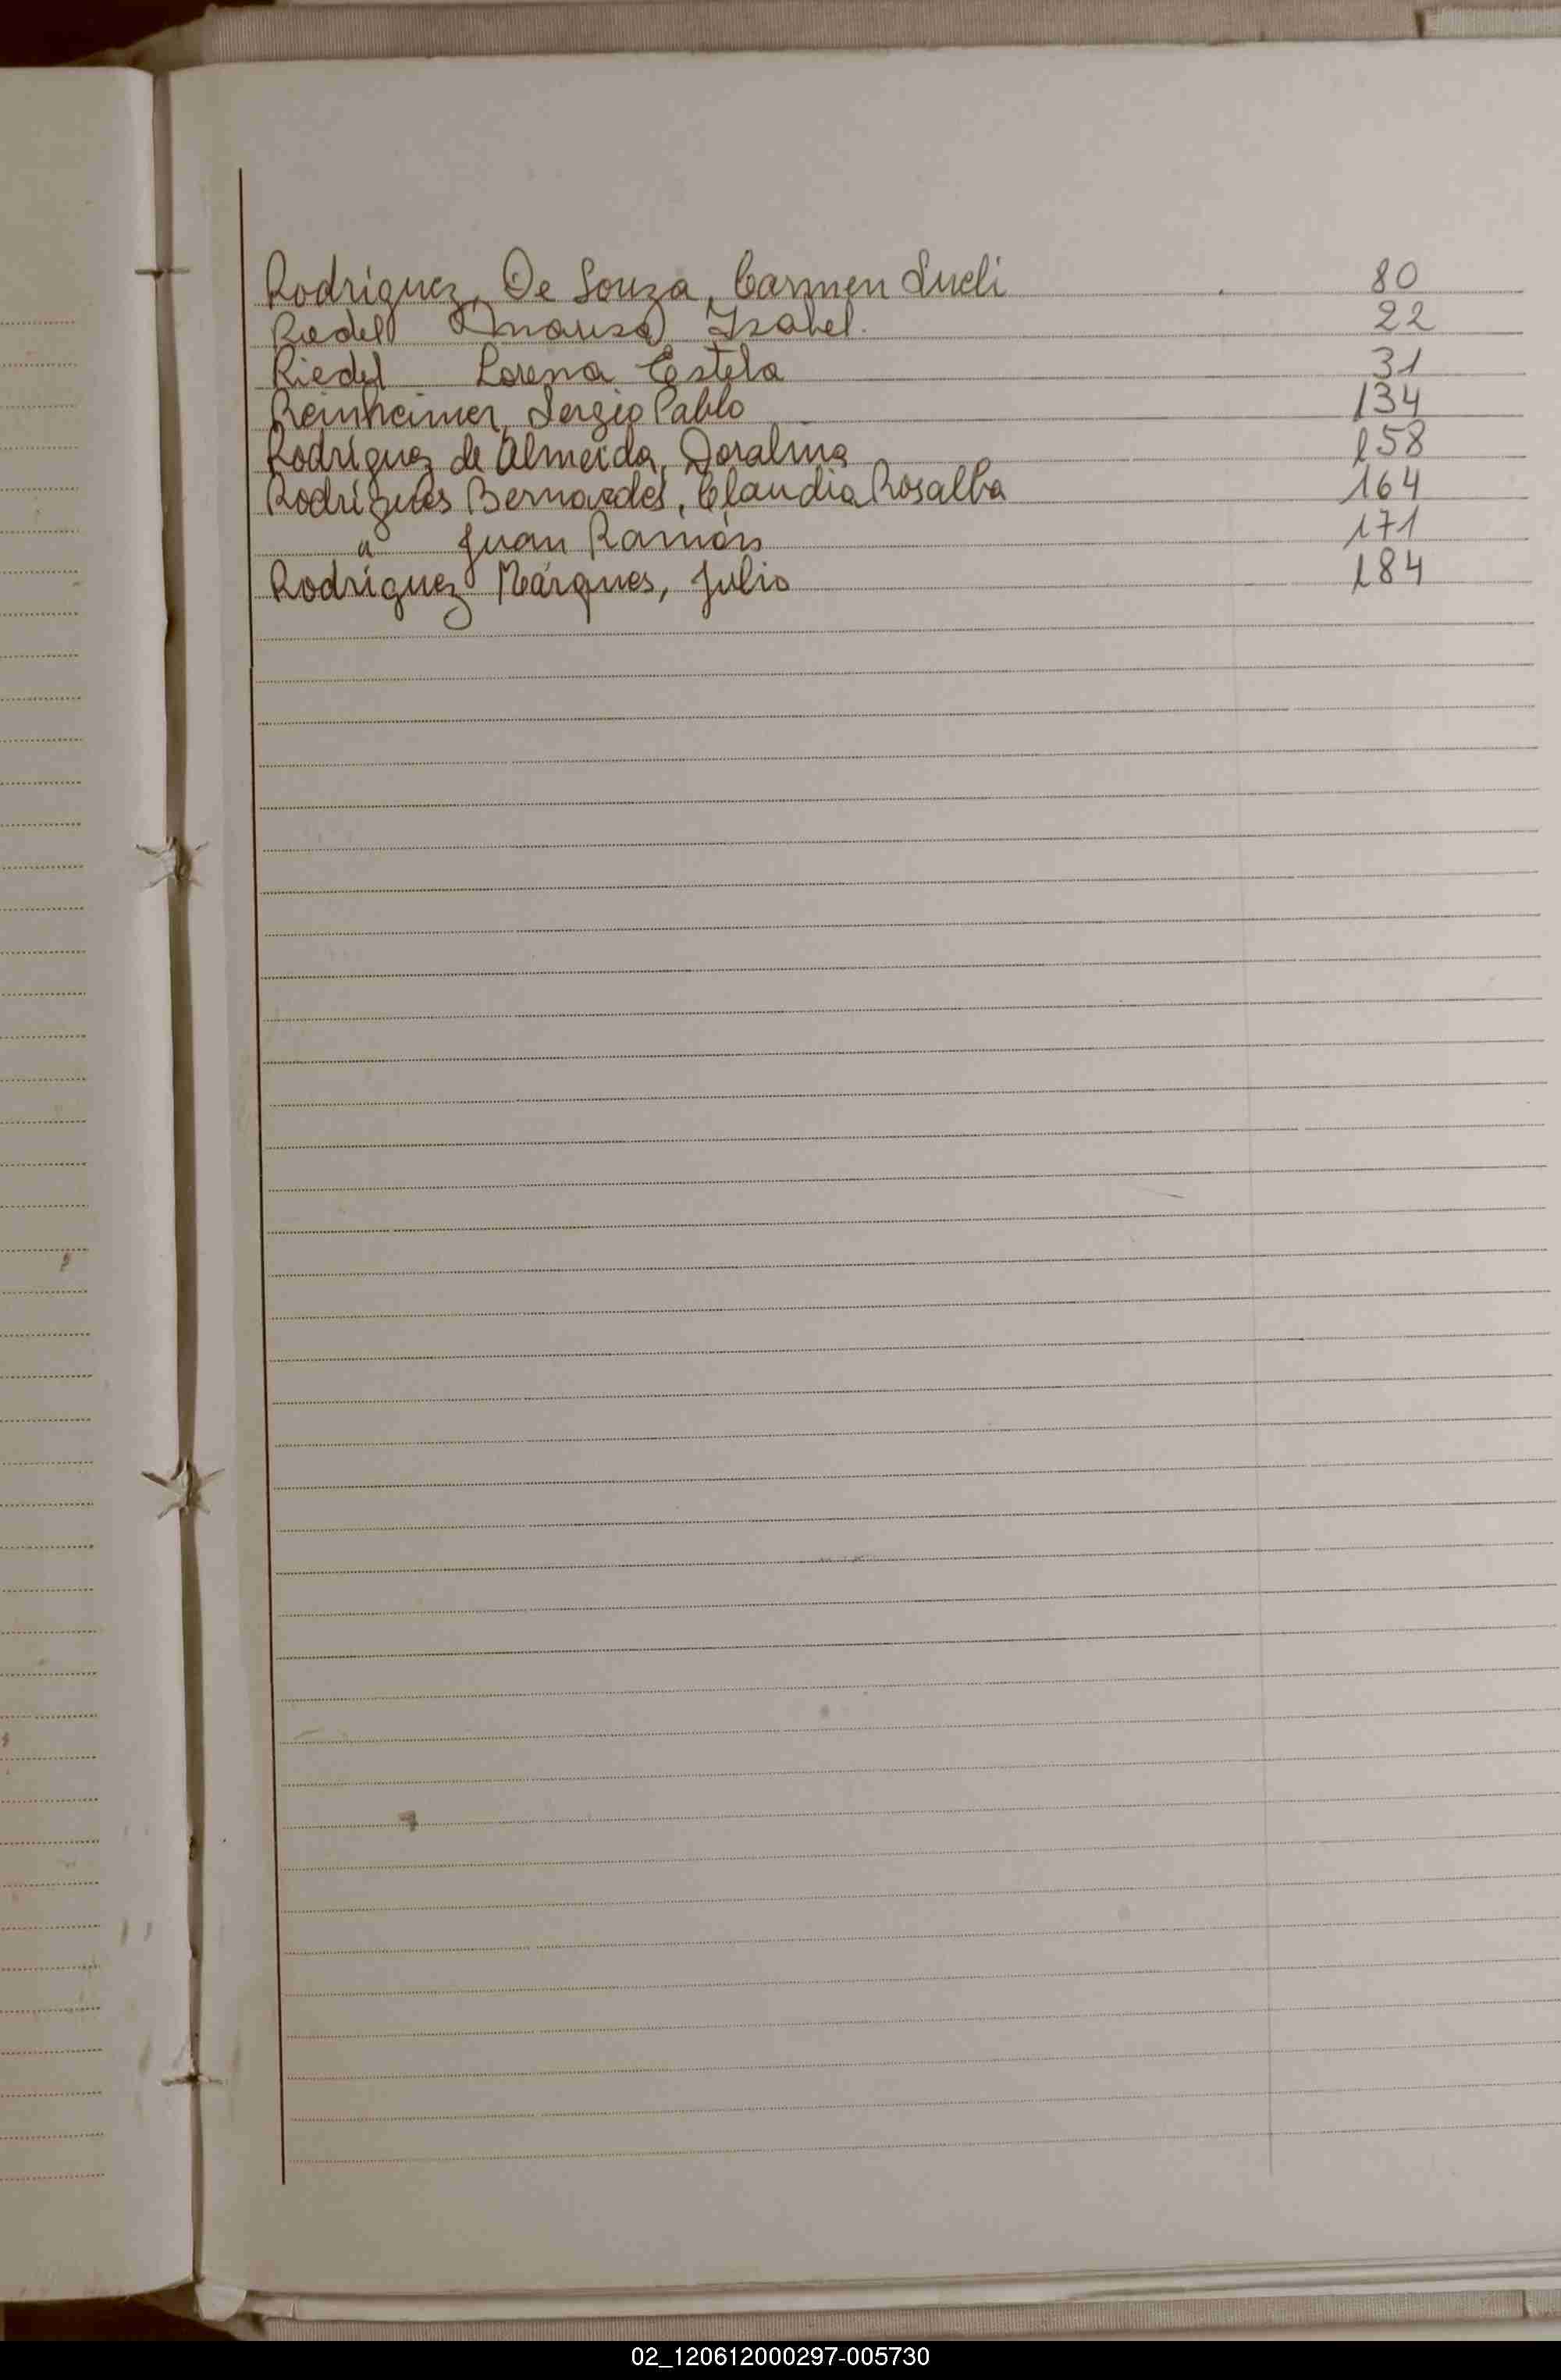 Rodriguez, De Souza, Carmen Sueli 80
Riedel Marisa Isabel. 22
Riedel Lorena Estela 31
Reinheimer, Sergio Pablo 134
Rodríguez de Almeida, Doralina 158
Rodrígues Bernardes, Claudia Rosalba 164
" Juan Ramón 171
Rodríguez Márques, Julio 184
02_120612000297-005730